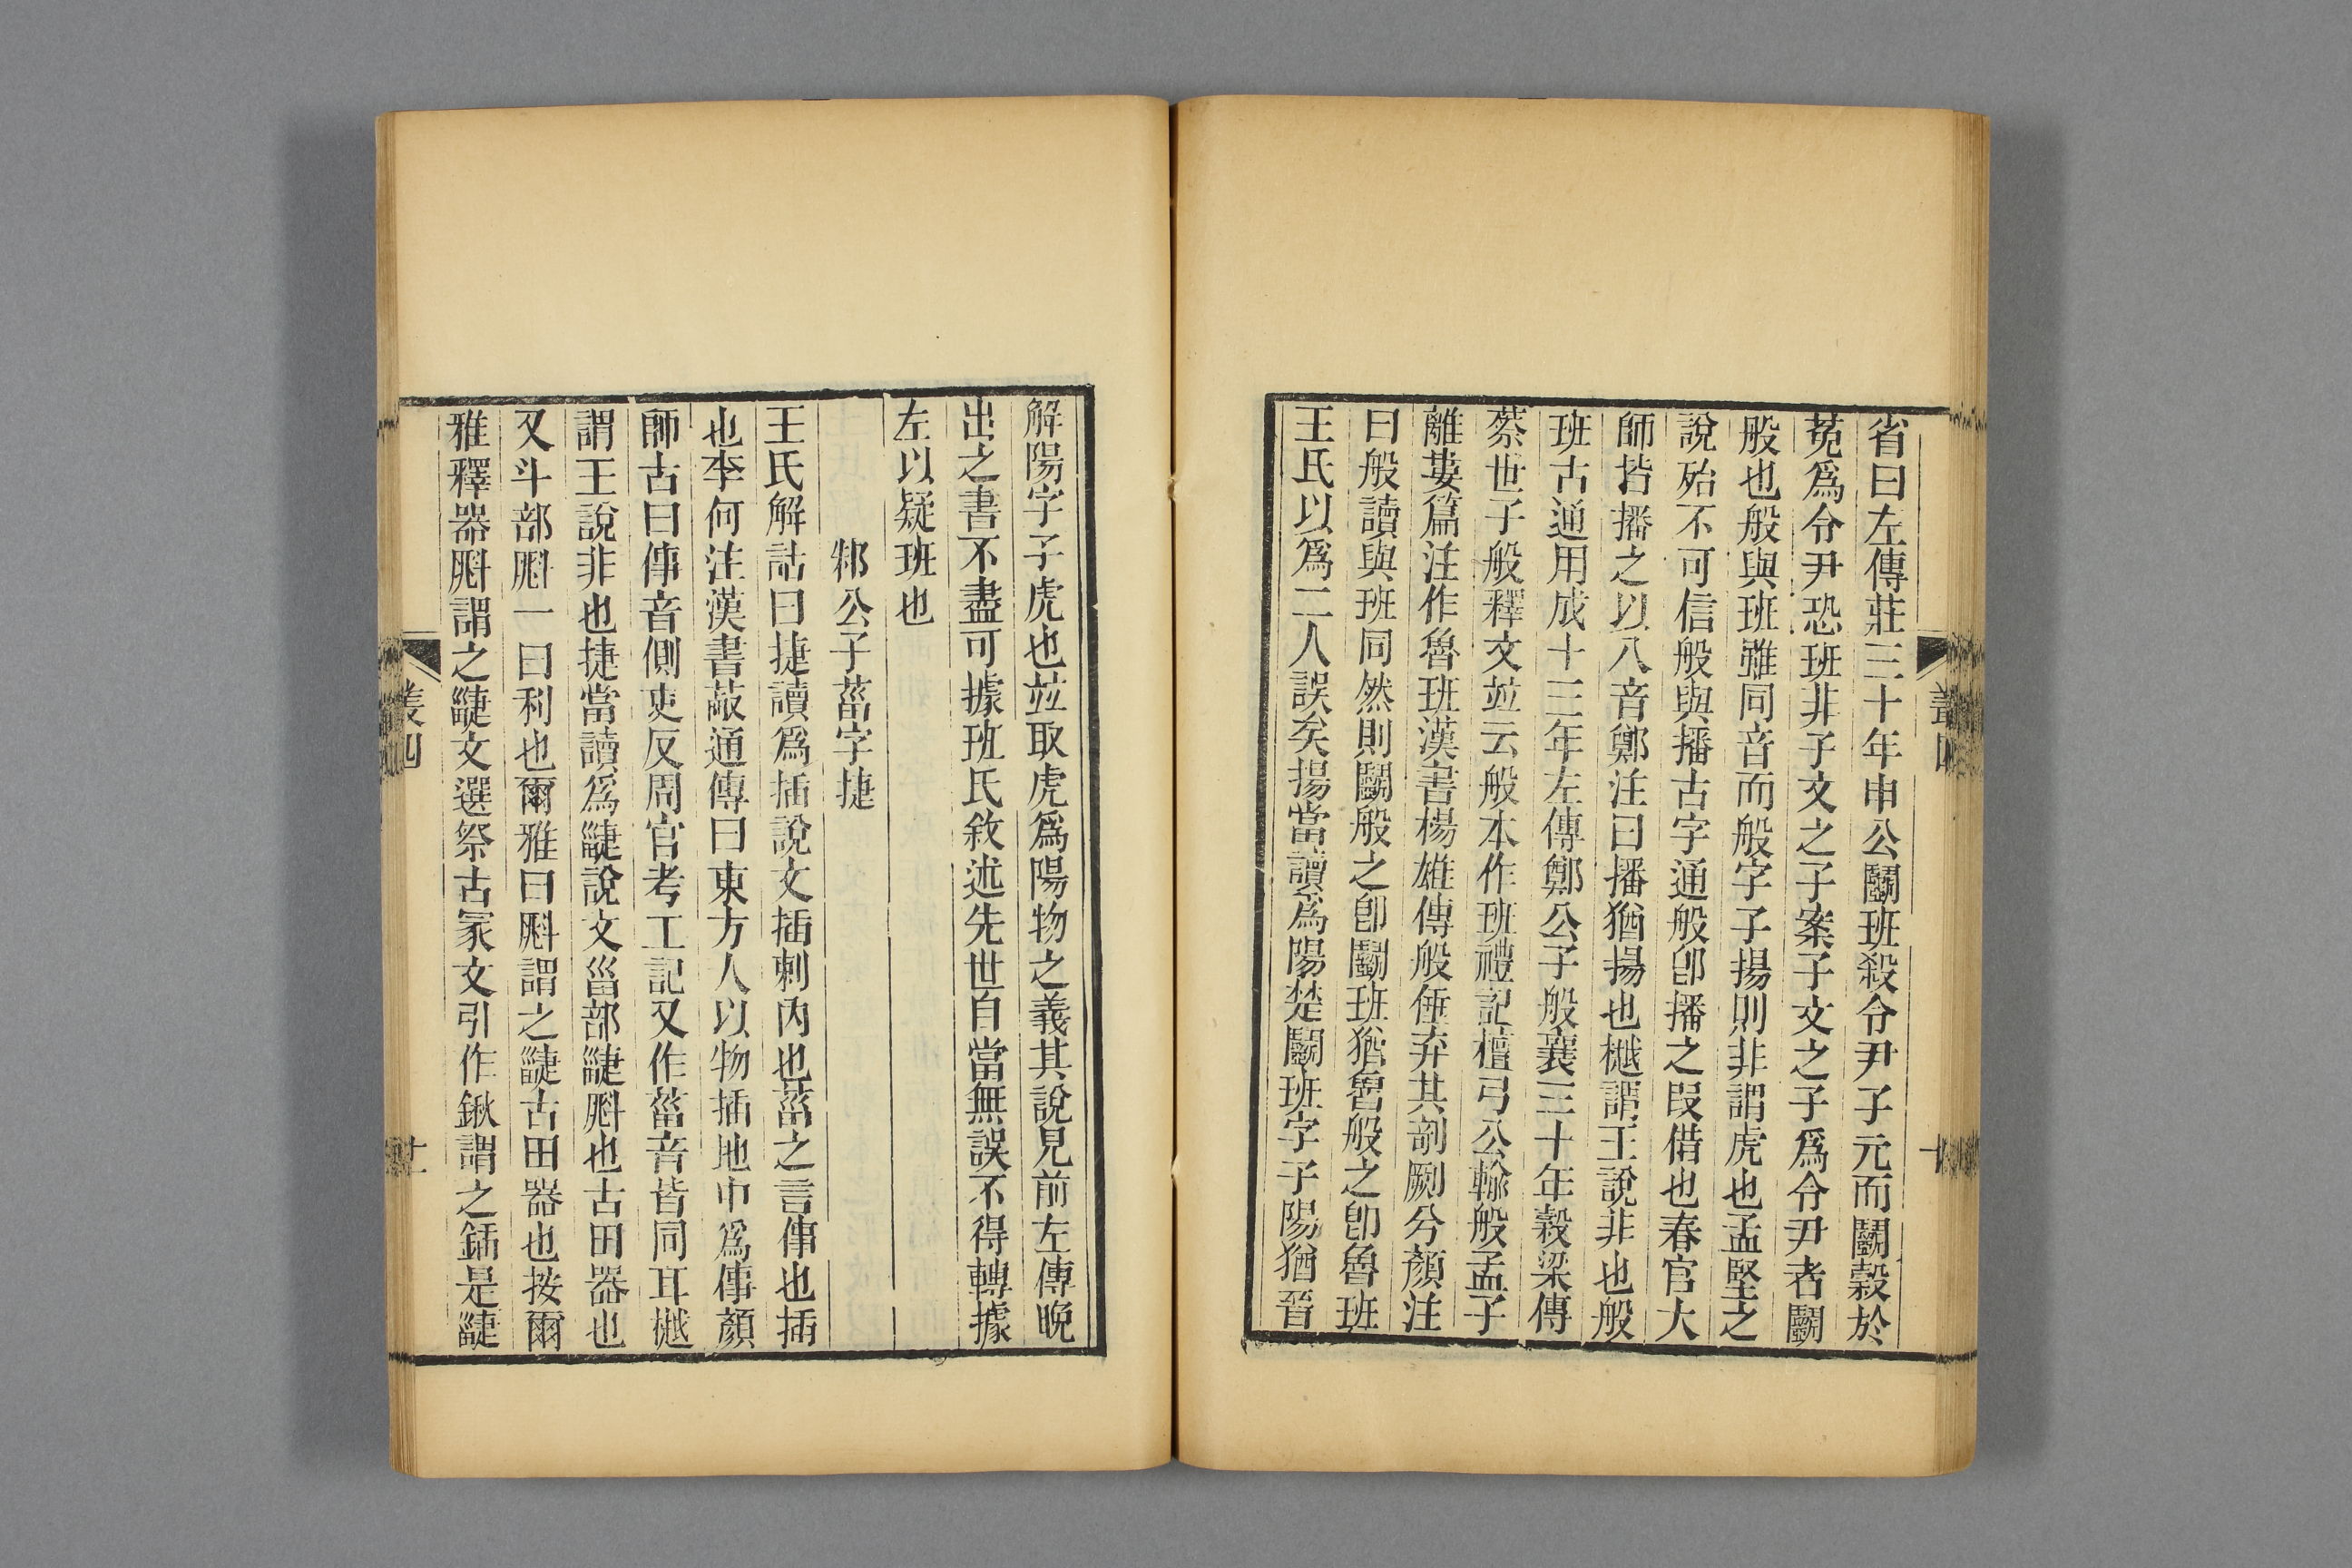 省曰左傳莊三十年申公鬭班殺令尹子元而鬭穀於
菟爲令尹恐班非子文之子案子文之子爲令尹者鬭
般也般與班雖同音而般字子揚則非謂虎也孟堅之
說殆不可信般與播古字通般卽播之叚借也春官大
師皆播之以八音鄭注曰播猶揚也樾謂王說非也般
班古通用成十三年左傳鄭公子般襄三十年穀梁傳
蔡世子般釋文竝云般本作班禮記檀弓公輸般孟子
離婁篇注作魯班漢書楊雄傳般倕弃其剞劂兮顏注
曰般讀與班同然則鬭般之卽鬭班猶魯般之卽魯班
王氏以爲二人誤矣揚當讀爲陽楚鬭班字子陽猶晉
解陽字子虎也竝取虎爲陽物之義其說見前左傳晚
出之書不盡可據班氏敘述先世自當無誤不得轉據
左以疑班也
邾公子菑字捷
王氏解詁曰捷讀爲插說文插刺內也菑之言倳也插
也李何注漢書蒯通傳曰東方人以物插地中爲倳顏
師古曰倳音側吏反周官考工記又作菑音皆同耳樾
謂王說非也捷當讀爲疀說文甾部疀㪿也古田器也
又斗部㪿一曰利也爾雅曰㪿謂之疀古田器也按爾
雅釋器㪿謂之疀文選祭古冢文引作鍬謂之鍤是疀
叢四
十一